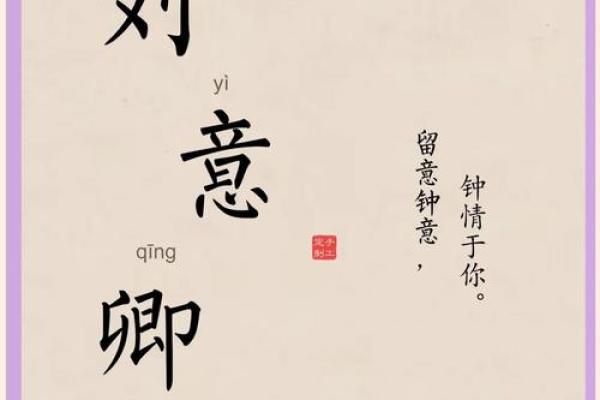 刘
yì
意
qīng
卿
手工
定制
留意钟意，
钟情于你。